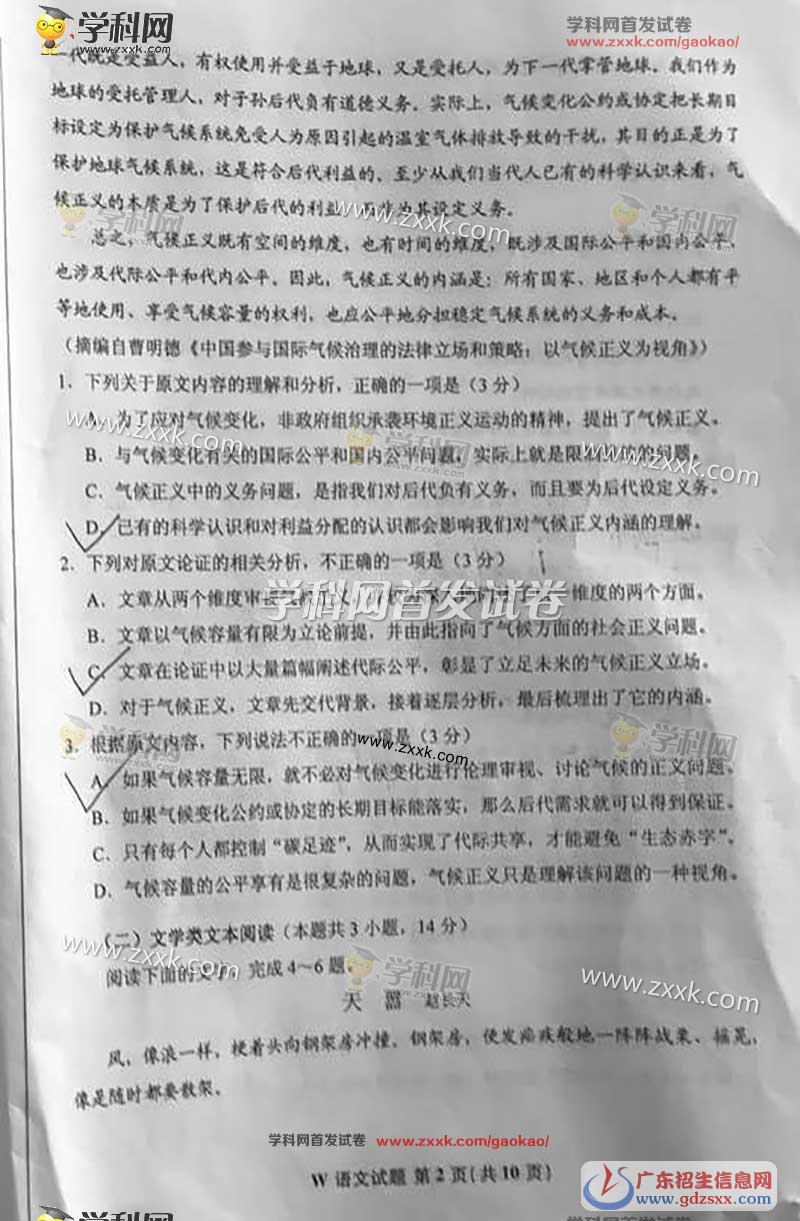 学科网
www.zxxk.com
学科网首发试卷
www.zxxk.com/gaokao/
一代既是受益人，有权使用并受益于地球，又是受托人，为下一代掌管地球。我们作为
地球的受托管理人，对于孙后代负有道德义务。实际上，气候变化公约或协定把长期目
标设定为保护气候系统免受人为原因引起的温室气体排放导致的干扰，其目的正是为了
保护地球气候系统，这是符合后代利益的。至少从我们当代人已有的科学认识来看，气
候正义的本质是为了保护后代的利益，而非为其设定义务。
总之，气候正义既有空间的维度，也有时间的维度，既涉及国际公平和国内公平，
也涉及代际公平和代内公平。因此，气候正义的内涵是：所有国家、地区和个人都有平
等地使用、享受气候容量的权利，也应公平地分担稳定气候系统的义务和成本。
（摘编自曹明德《中国参与国际气候治理的法律立场和策略：以气候正义为视角》）
1．下列关于原文内容的理解和分析，正确的一项是（3 分）
A．为了应对气候变化，非政府组织承袭环境正义运动的精神，提出了气候正义。
B．与气候变化有关的国际公平和国内公平问题，实际上就是限制排放的问题。
C．气候正义中的义务问题，是指我们对后代负有义务，而且要为后代设定义务。
D．已有的科学认识和对利益分配的认识都会影响我们对气候正义内涵的理解。
2．下列对原文论证的相关分析，不正确的一项是（3 分）
A．文章从两个维度审视气候正义，维度的两个方面。
B．文章以气候容量有限为立论前提，并由此指向了气候方面的社会正义问题。
C．文章在论证中以大量篇幅阐述代际公平，彰显了立足未来的气候正义立场。
D．对于气候正义，文章先交代背景，接着逐层分析，最后梳理出了它的内涵。
3．根据原文内容，下列说法不正确的一项是（3 分）
A．如果气候容量无限，就不必对气候变化进行伦理审视、讨论气候的正义问题。
B．如果气候变化公约或协定的长期目标能落实，那么后代需求就可以得到保证。
C．只有每个人都控制“碳足迹”，从而实现了代际共享，才能避免“生态赤字”。
D．气候容量的公平享有是很复杂的问题，气候正义只是理解该问题的一种视角。
（二）文学类文本阅读（本题共 3 小题，14 分）
阅读下面的文字，完成 4～6 题。
天 嚣 赵长天
风，像浪一样，梗着头向钢架房冲撞。钢架房，便发疟疾般地一阵阵战栗、摇晃，
像是随时都要散架。
学科网首发试卷 www.zxxk.com/gaokao/
W 语文试题 第 2 页(共 10 页)
广东招生信息网
www.gdzsxx.com